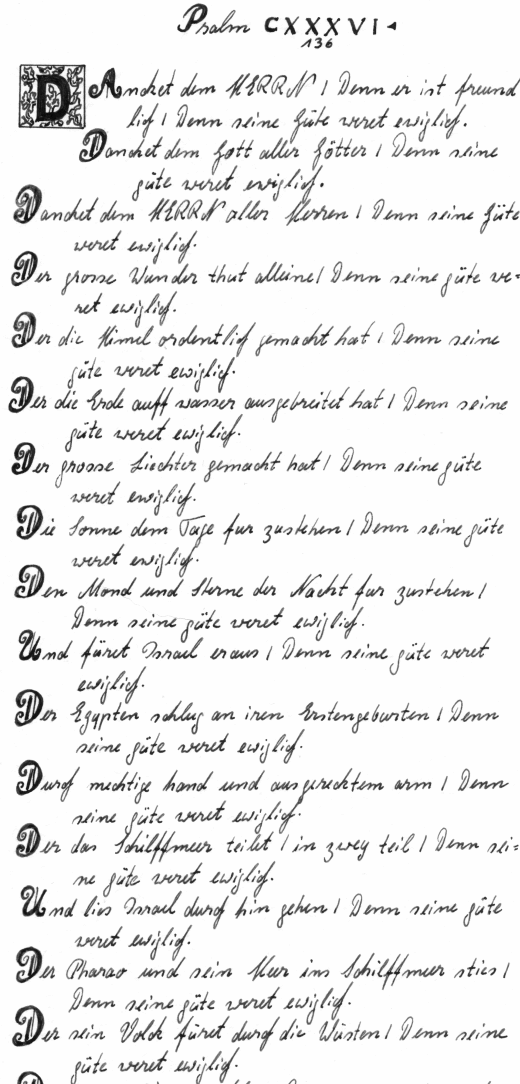 Psalm CXXXVI.
136
DAncket dem HERRN / Denn er ist freund
lich / Denn seine Güte weret ewiglich.
Dancket dem Gott aller Götter / Denn seine
güte weret ewiglich.
Dancket dem HERRN aller Herren / Denn seine Güte
weret ewiglich.
Der grosse Wunder thut alleine / Denn seine güte we=
ret ewiglich.
Der die Himel ordentlich gemacht hat / Denn seine
güte weret ewiglich.
Der die Erde auff wasser ausgebreitet hat / Denn seine
güte weret ewiglich.
Der grosse Liechter gemacht hat / Denn seine güte
weret ewiglich.
Die Sonne dem Tage fur zustehen / Denn seine güte
weret ewiglich.
Den Mond und Sterne der Nacht fur zustehen /
Denn seine güte weret ewiglich.
Und füret Israel eraus / Denn seine güte weret
ewiglich.
Der Egypten schlug an iren Erstengeburten / Denn
seine güte weret ewiglich.
Durch mechtige hand und ausgerecktem arm / Denn
seine güte weret ewiglich.
Der das Schilffmeer teilet / in zwey teil / Denn sei=
ne güte weret ewiglich.
Und lies Israel durch hin gehen / Denn seine güte
weret ewiglich.
Der Pharao und sein Heer ins Schilffmeer sties /
Denn seine güte weret ewiglich.
Der sein Volck füret durch die Wüsten / Denn seine
güte weret ewiglich.